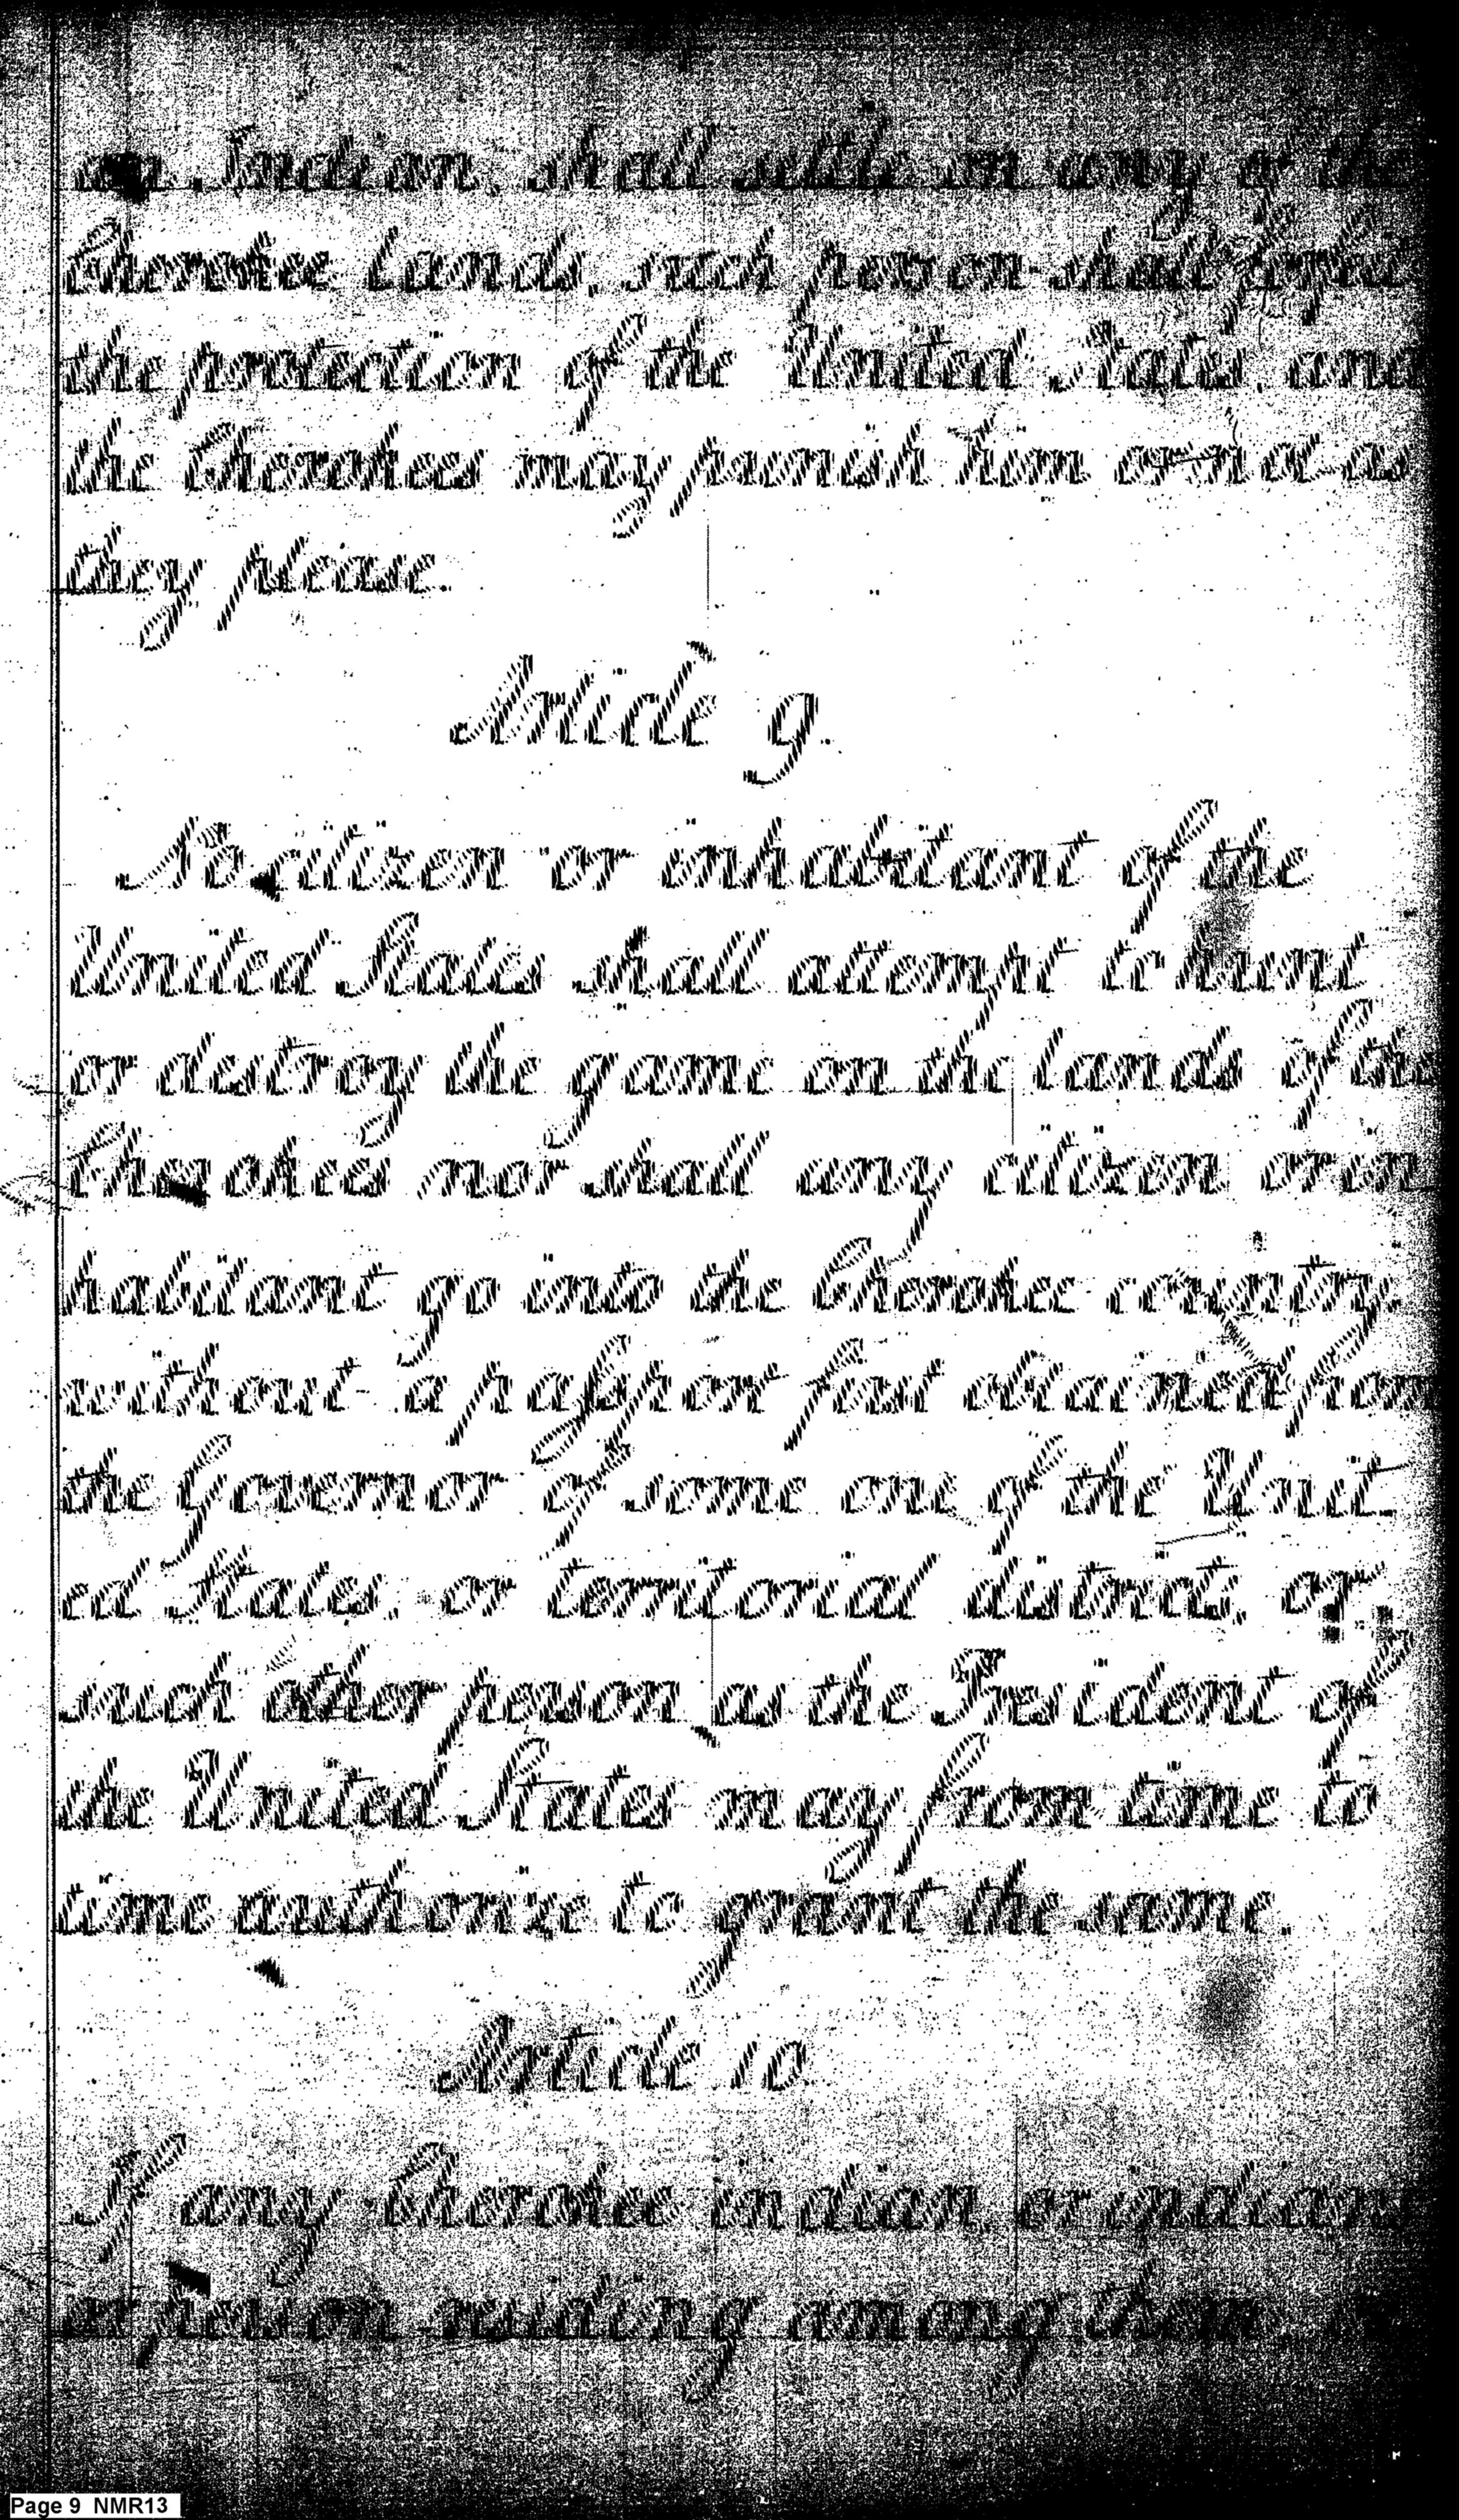 an Indian, shall settle on any of the
Cherokee lands, such person shall forfeit
the protection of the United States, and
the Cherokees may punish him or not as
they please.
Article 9.
No citizen or inhabitant of the
United States shall attempt to hunt
or destroy the game on the lands of the
Cherokees nor shall any citizen or in
habitant go into the Cherokee country,
without a passport first obtained from
the Governor of some one of the Unit
ed States, or territorial districts, or
such other person as the President of
the United States may from time to
time authorize to grant the same.
Article 10
If any Cherokee indian or indians
or person residing among them
Page 9 NMR13